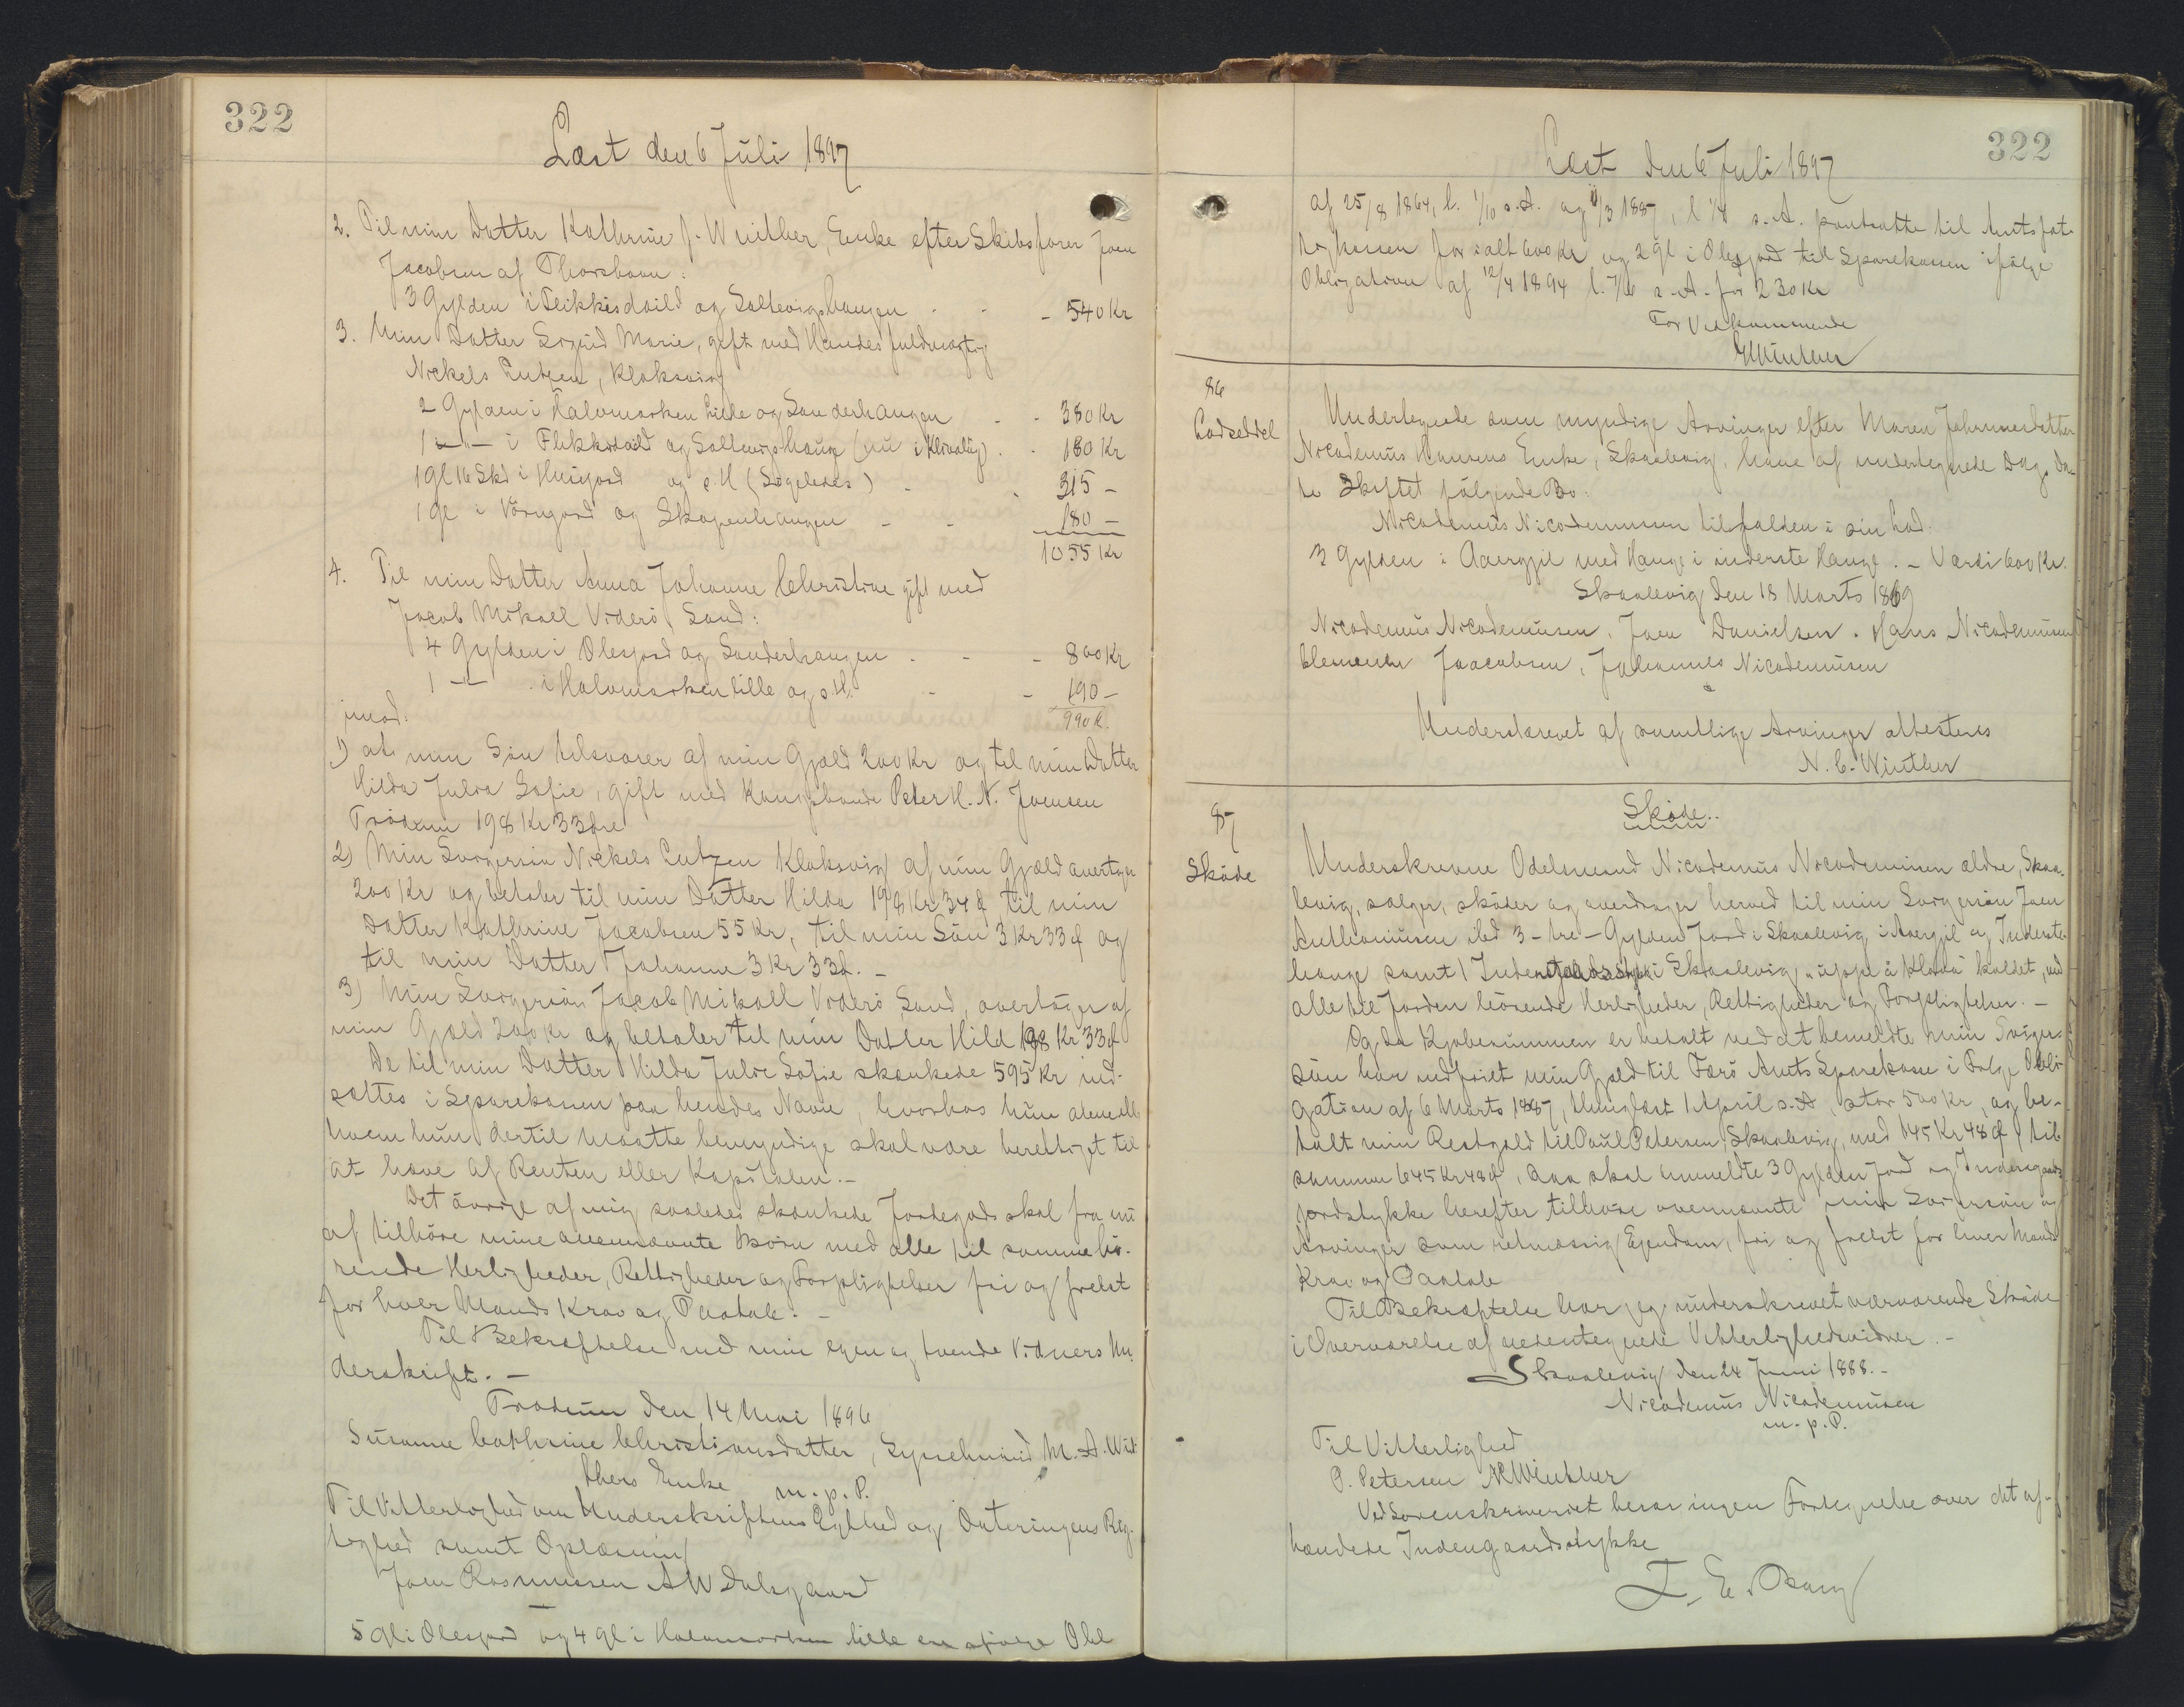 322
Læst den 6 Juli 1897
2. Til min Datter Kathrine J. Winther, Enke efter Skibsfører Joen
Jacobsen af Thorshavn:
3 Gylden i Flikkisdail og Soltuvigshaugen - - - 540 Kr
3. Min Datter Sigrid Marie, gift med Handesfuldmægtig
Nickels Lutzen, Klaksvig
2 Gylden i Halvmorken lille og Sonderhaugen - - 380 Kr
1 -"- i Flikkisdaild og Soltuvigs Haug (nu i Klivaløg) . - 180 Kr
1 Gl 16 Skd i Husgord og s. H (Ligeledes) - - 315 -
1 Gl i Vorngord og Skopenhaugen - - 180 -
1055 Kr
4. Til min Datter Anna Johanne Christine gift med
Jacob Mikael Viderö, Sand:
4 Gylden i Olesgord og Sonderhaugen - - - 800 Kr
1 -"- i Halvmorken lille og s. H. - - 190 -
imod: 990 K.
1) at min Sön tilsvarer af min Gjæld 200 Kr og til min Datter
Hilda Julia Sofie, gift med Kongsbonde Peter H. N. Joensen
Trödum 198 Kr 33 öre
2) Min Svigersön Nickels Lutzen Klaksvig af min Gjæld overtager
200 Kr og betaler til min Datter Hilda 198 Kr 34 Ø til min
Datter Kathrine Jacobsen 55 Kr, til min Sön 3 Kr 33 Ø og
til min Datter Johanne 3 Kr 33 Ø. -
3) Min Svigersön Jacob Mikael Viderö, Sand, overtager af
min Gjæld 200 Kr og betaler til min Datter Hild 198 Kr 33 Ø
De til min Datter Hilda Julie Sofie skænkede 595 Kr ind-
sættes i Sparekassen paa hendes Navn, hvorhos hun alene eller
hvem hun dertil maatte bemyndige skal være berettiget til
at hæve af Renten eller Kapitalen. -
Det övrige af mig saaledes skænkede Jordegods skal fra nu
af tilhöre mine ovennævnte Börn med alle til samme hö-
rende Herligheder, Rettigheder og Forpligtelser fri og frelst
for hver Mands Krav og Paatale. -
Til Bekræftelse med min egen og tvende Vidners Un-
derskrift. -
Trödum den 14 Mai 1896
Susanne Cathrine Christiansdatter, Sysselmand M. A. Win-
thers Enke m. p. P.
Til Vitterlighed om Underskriftens Ægthed og Dateringens Rig-
tighed samt Oplæsning
Joen Rasmussen A W Dalsgaard
5 Gl i Olesgord og 4 Gl i Halvmorken lille ere ifölge Obl
322
Læst den 6 Juli 1897
af 25/8 1864, l. 1/10 s. A. og 11/3 1887, l 1/4 s. A. pantsatte til Amtsfat-
tigkassen for ialt 600 Kr og 2 gl i Olesgord til Sparekassen ifölge
Obligation af 12/4 1894 l. 7/6 s. A. for 230 Kr
For Vedkommende
Winther
86
Lodseddel
Undertegnede som myndige Arvinger efter Maren Johannesdatter
Nicodemus Hansens Enke, Skaalevig, have af undertegnede Dags Da-
to Skiftet fölgende Bo.
Nicodemus Nicodemussen tilfalden i sin Lod.
3 Gylden i Aaergjil med Hauge i inderste Hauge. - Værdi 600 Kr.
Skaalevig den 18 Marts 1869
Nicodemus Nicodemusen, Joen Danielsen. Hans Nicodemusen
Clemen Jaacobsen, Johannes Nicodemusen
Underskrevet af samtlige Arvinger attesteres
N. C. Winther
87
Skøde
Skøde..
Underskrevne Odelsmand Nicodemus Nicodemusen ældre, Skaa-
levig, sælger, sköder og overdrager herved til min Svigersön Joen
Antheoniusen ibd 3 - tre - Gylden Jord i Skaalevig i Aaergjil og Inderste-
hauge samt 1 Indengaardsstyk i Skaalevig "uppe a Klova" kaldet, med
alle til Jorden hörende Herligheder, Rettigheder og Forpligtelser. -
Og da Kjöbesummen er betalt ved at bemeldte min Sviger-
sön har indfriet min Gjæld til Færö Amts Sparekasse i Fölge Obli-
gation af 6 Marts 1887, thinglæst 1 April s. A, stor 500 Kr, og be-
talt min Restgjeld til Paul Petersen, Skaalevig, med 145 Kr 48 Ø, til-
sammen 645 Kr 48 Ø, saa skal anmeldte 3 Gylden Jord og Indengaards
jordstykke herefter tilhöre ovennævnte min Svigersön og
Arvinger som retmæssig Ejendom, fri og frelst for hver Mands
Krav og Paatale
Til Bekræftelse har jeg underskrevet nærværende Sköde
i Overværelse af nedentegnede Vitterlighedsvidner. -
Skaalevig den 24 Juni 1888. -
Nicodemus Nicodemusen
m. p. P.
Til Vitterlighed
P. Petersen N C Winther
Ved Sorenskriveriet beror ingen Fortegnelse over det af-
hændede Indengaardsstykke